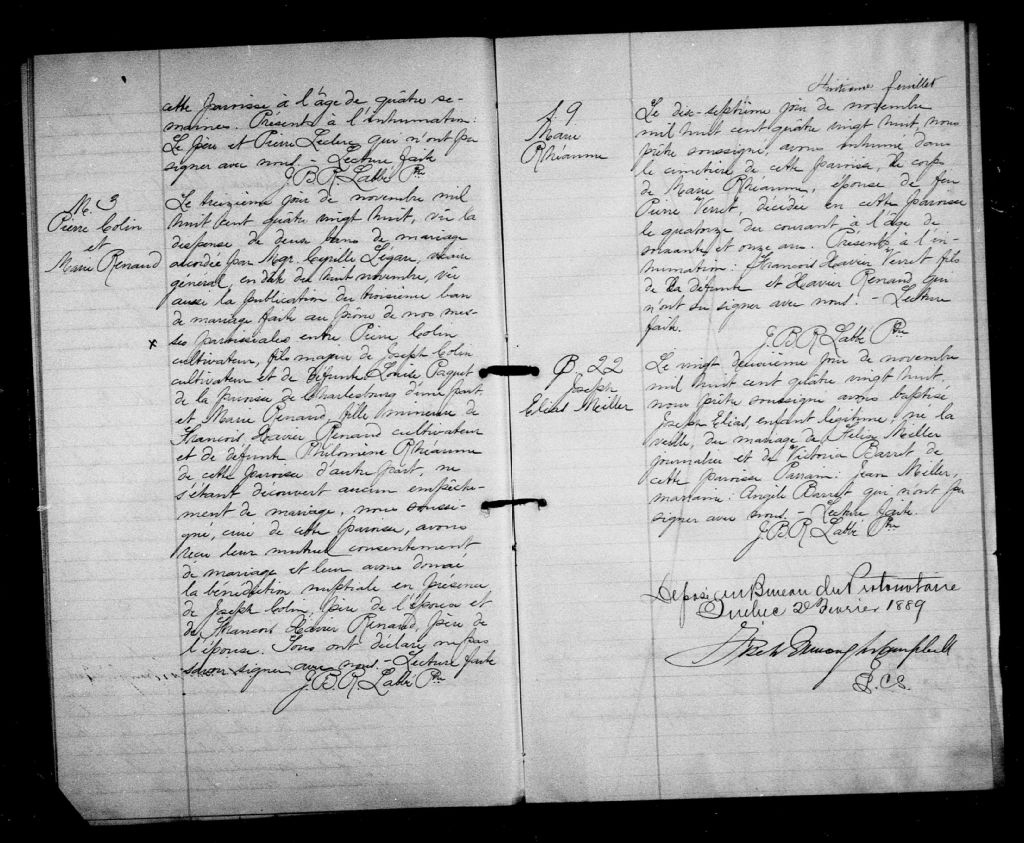 cette paroisse à l'âge de quatre se-
maines. Présents à l'inhumation:
Le père et Pierre Leclerc qui n'ont pu
signer avec nous. - Lecture faite
J.B.R. Labbé Ptre
M. 3
Pierre Colin
et
Marie Renaud
Le treizième jour de novembre mil
huit cent quatre vingt huit, vu la
dispense de deux bans de mariage
accordée par Mgr. Cyrille Légaré, vicaire
général, en date du huit novembre, vu
aussi la publication du troisième ban
de mariage faite au prône de nos mes-
ses paroissiales entre Pierre Colin
x
cultivateur, fils majeur de Joseph Colin
cultivateur et de défunte Louise Paquet
de la paroisse de Charlesbourg d'une part,
et Marie Renaud, fille mineure de
Francois Xavier Renaud cultivateur
et de défunte Philomène Rhéaume
de cette paroisse d'autre part, ne
s'étant découvert aucun empêche-
ment de mariage, nous soussi-
gné, curé de cette paroisse, avons
reçu leur mutuel consentement
de mariage et leur avons donné
la bénédiction nuptiale en présence
de Joseph Colin, père de l'époux et
de Francois Xavier Renaud, père de
l'épouse. Tous ont déclaré ne pas
savoir signer avec nous. - Lecture faite
J.B.R. Labbé Ptre
Huitième feuillet
S. 9
Marie
Rhéaume
Le dix-septième jour de novembre
mil huit cent quatre vingt huit, nous
prêtre soussigné, avons inhumé dans
le cimetière de cette paroisse, le corps
de Marie Rhéaume, épouse de feu
Pierre Verret, décédée en cette paroisse
le quatorze du courant à l'âge de
soixante et onze ans. Présents à l'in-
humation: Francois Xavier Verret fils
de la défunte et Xavier Renaud qui
n'ont su signer avec nous. - Lecture
faite.
J.B.R. Labbé Ptre
B. 22
Joseph
Elias Meiller
Le vingt deuxième jour de novembre
mil huit cent quatre vingt huit,
nous prêtre soussigné avons baptisé
Joseph Elias, enfant légitime, né la
veille, du mariage de Félix Meiller
journalier et de Victoria Barret de
cette paroisse Parrain: Jean Meiller,
marraine: Angèle Barret qui n'ont pu
signer avec nous. - Lecture faite.
J.B.R. Labbé Ptre
Déposé au Bureau du Protonotaire
Québec 2 Février 1889
Campbell
P.C.S.